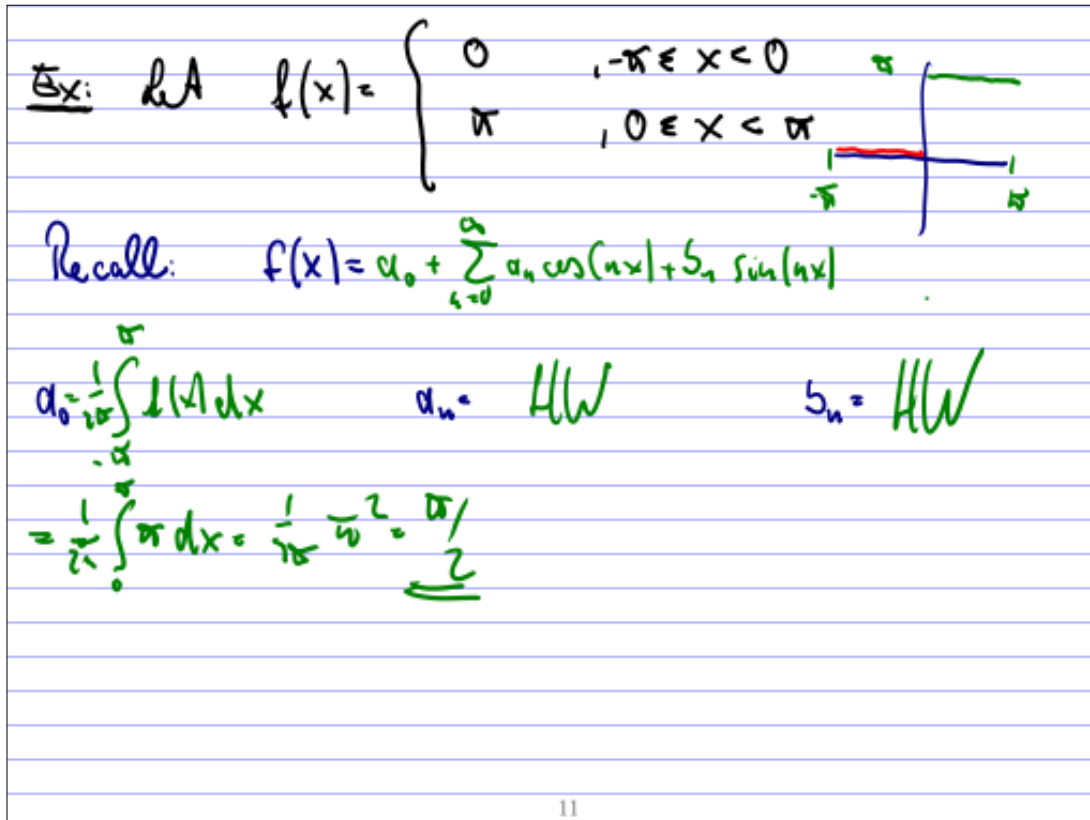 Ex: Let f(x) = { 0 , -π ≤ x < 0
π , 0 ≤ x < π
π
-π π
Recall: f(x) = a₀ + ∑_{n=0}^{∞} aₙ cos(nx) + bₙ sin(nx)
a₀ = 1/2π ∫_{-π}^{π} f(x) dx aₙ = HW bₙ = HW
= 1/2π ∫_{0}^{π} π dx = 1/2π π² = π/2
11